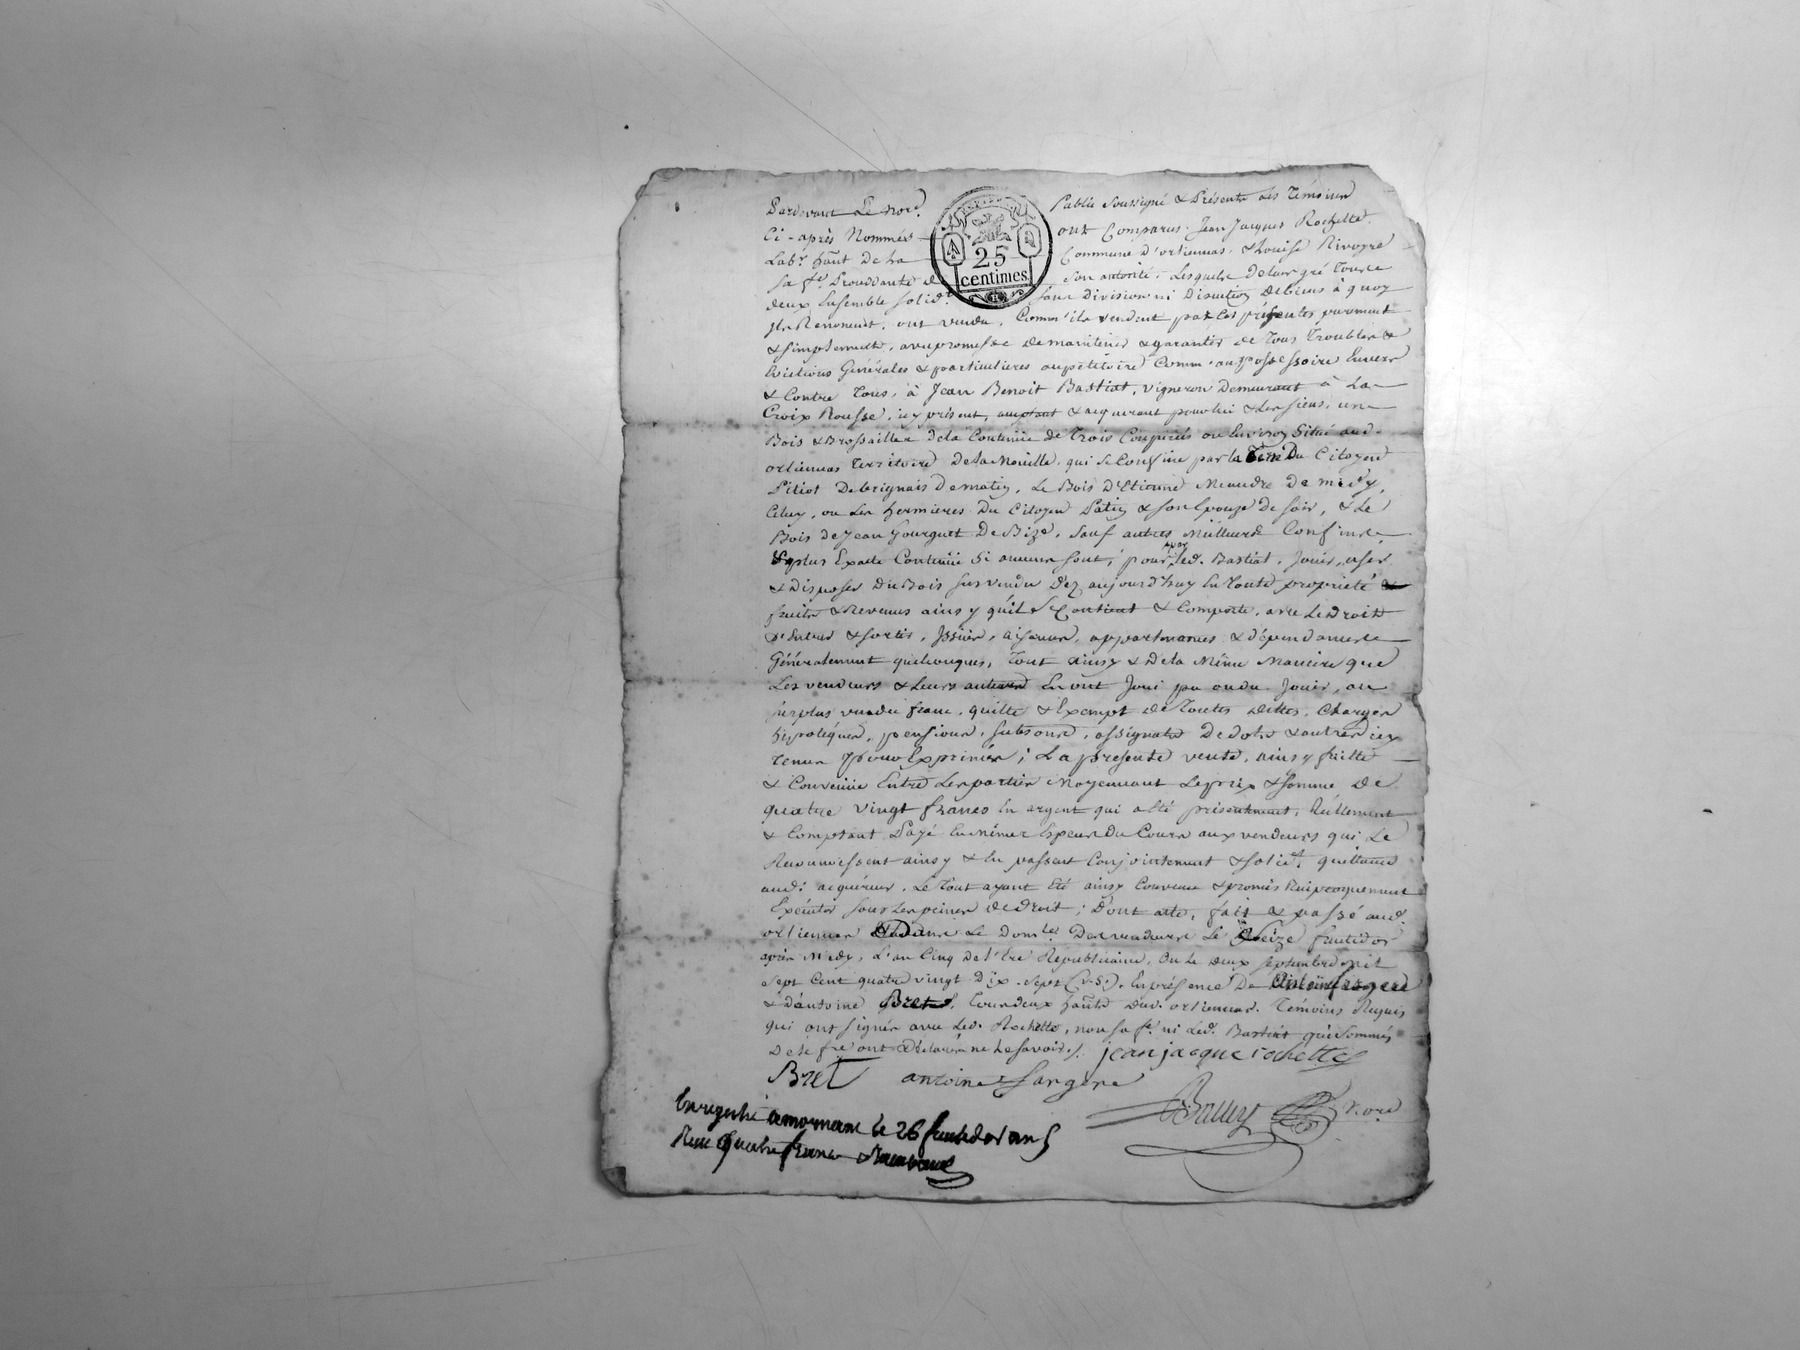 Pardevant Le Nore. Public Soussigné & Présents des Témoins
Ci-après Nommés ont Comparus Jean Jacques Rochette
Labr. habt. De la Commune d'orlienas & Louise Rivoyre
25
centimes
sa fe. Procedante de son autorité. Lesquels de leur gré Tous
deux Ensemble solidt. sans Division ni Discution De biens à quoy
Ils Renoncent, ont vendu, Comm'ils vendent par les présentes purement
& simplement, avec promesse de maintenir & garantir de Tous Troubles &
Evictions Générales & particulieres au petitoire Comm'au possessoire Envers
& Contre Tous, à Jean Benoit Bastiat, vigneron Demeurant à La
Croix Rousse, icy présent, acceptant & acquerant pour lui & les siens, un
Bois & Brossailles de la Contenüe de Trois Coupées ou Environ Situé aud.
orlienas Territoire De la Nouille, qui se Confine par la Terre Du Citoyen
Pitiot De brignais De matin, Le Bois D'Etienne Meaudre De midy
Celuy, ou Les hermieres Du Citoyen Patin & son Epouze De soir, & Le
Bois De Jean Gourguet De Bize, Sauf autres Meilleurs Confins
& plus Exacte Contenüe Si aucuns sont, pour par Led. Bastiat, Jouir, user
& Disposer Du Bois sus vendu Dez aujourd'huy En Toute propriété
fruits & Revenus ainsy qu'il se Contient & Comporte, avec Le Droit
D'Entrer & sortir, Issües, aisances, appartenances & dépendances
Généralement quelconques, Tout ainsy & De la Même Maniere que
Les vendeurs & Leurs auteurs En ont Joui pu ou du Jouir, au
surplus vendu franc, quitte & Exempt de Toutes Dettes, Charges
hipoteques, pensions, , assignats De dots & autres icy
Tenus pour Exprimés; La presente vente, ainsy faitte
& Convenüe Entre Les parties Moyennant Le prix & somme De
quatre vingt francs En argent qui a Eté présentement, Réellement
& Comptant Payé En mêmes Especes Du Cours aux vendeurs qui Le
Reconnoissent ainsy & En passent Conjointement & solidt. quittance
aud. acquéreur. Le Tout ayant Eté ainsy Convenu & promis Reciproquement
Exécuter sous Les peines De droit; Dont acte, fait & passé aud.
orlienas Dans Le Domle. Des vendeurs Le Seize fructidor
après Midy, L'an Cinq De l'Ere Républicaine, Ou Le deux septembre Mil
Sept Cent quatre vingt Dix-Sept (v.S.). En présence De Antoine fargere
& d'antoine Bret, Tous deux habts. dud. orlienas. Témoins Requis
qui ont signés avec Led. Rochette, non sa fe. ni Led. Bastiat qui Sommés
De le fre. ont Déclarés ne Le savoir./. jean jacque rochette
Bret antoine fargere
Nore.
Enregistré a mornant le 26 fructidor an 5
Reçu quatre francs